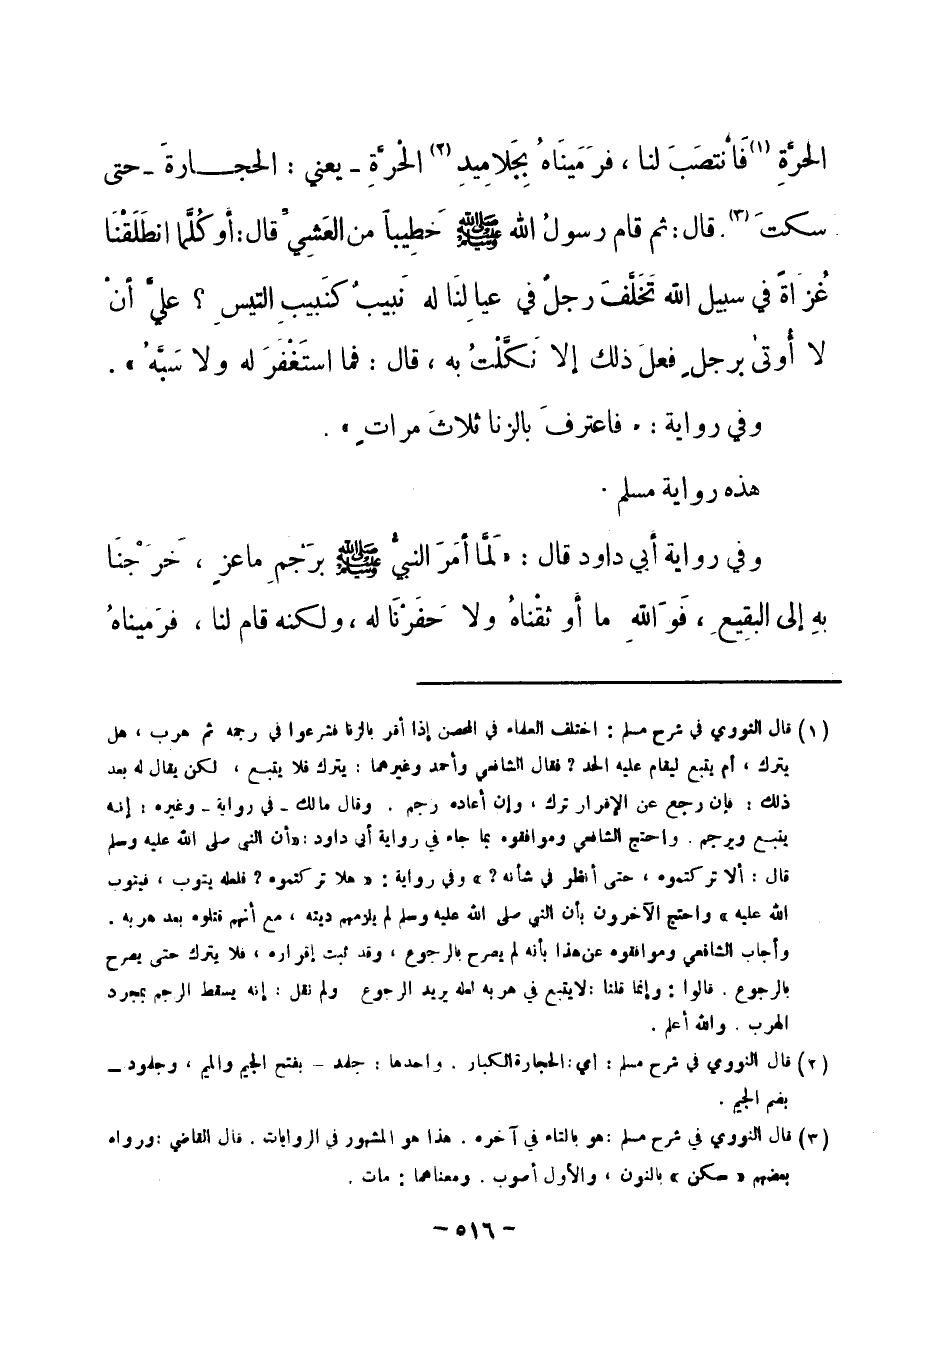 الحرَّةِ (١) فَانْتصَبَ لنا ، فرَمَيناهُ بِجَلاميدِ (٢) الْحرَّةِ ـ يعني : الحجـارةَ ـ حتى
سكتَ (٣) . قال : ثم قام رسولُ الله ﷺ خَطيباً من العَشِيِّ قال : أوكُلَّما انطَلَقْنَا
غُزَاةً في سبيل الله تَخَلَّفَ رجلٌ في عيالنَا له نَبيبٌ كنَبيبِ التيسِ ؟ عليَّ أنْ
لا أُوتىٰ برجلٍ فعلَ ذلك إلا نَكَّلْتُ به ، قال : فما استَغْفَرَ له ولا سَبَّهُ » .
وفي رواية : « فاعترفَ بالزنا ثلاثَ مراتٍ » .
هذه رواية مسلم .
وفي رواية أبي داود قال : « لَمَّا أمَرَ النبيُّ ﷺ برَجْمِ ماعزٍ ، خَرَجْنَا
بهِ إلى البقِيعِ ، فَوَاللهِ ما أوثقْناهُ ولا حَفَرْنَا له ، ولكنه قام لنا ، فرَمَيناهُ
(١) قال النووي في شرح مسلم : اختلف العلماء في المحصن إذا أقر بالزنا فشرعوا في رجمه ثم هرب ، هل
يترك ، أم يتبع ليقام عليه الحد ؟ فقال الشافعي وأحمد وغيرهما : يترك فلا يتبع ، لكن يقال له بعد
ذلك : فإن رجع عن الإقرار ترك ، وإن أعاده رجم . وقال مالك ـ في رواية ـ وغيره : إنه
يتبع ويرجم . واحتج الشافعي وموافقوه بما جاء في رواية أبي داود : «أن النبي صلى الله عليه وسلم
قال : ألا تركتموه ، حتى أنظر في شأنه ؟ » وفي رواية : « هلا تركتموه ؟ فلعله يتوب ، فيتوب
الله عليه » واحتج الآخرون بأن النبي صلى الله عليه وسلم لم يلزمهم ديته ، مع أنهم قتلوه بعد هربه .
وأجاب الشافعي وموافقوه عن هذا بأنه لم يصرح بالرجوع ، وقد ثبت إقراره ، فلا يترك حتى يصرح
بالرجوع . قالوا : وإنما قلنا : لا يتبع في هربه لعله يريد الرجوع ولم نقل : إنه يسقط الرجم بمجرد
الهرب . والله أعلم .
(٢) قال النووي في شرح مسلم : أي : الحجارة الكبار . واحدها : جلمد ـ بفتح الجيم والميم ، وجلمود ـ
بضم الجيم .
(٣) قال النووي في شرح مسلم : هو بالتاء في آخره . هذا هو المشهور في الروايات . قال القاضي : ورواه
بعضهم « سكن » بالنون ، والأول أصوب . ومعناهما : مات .
ـ ٥١٦ ـ